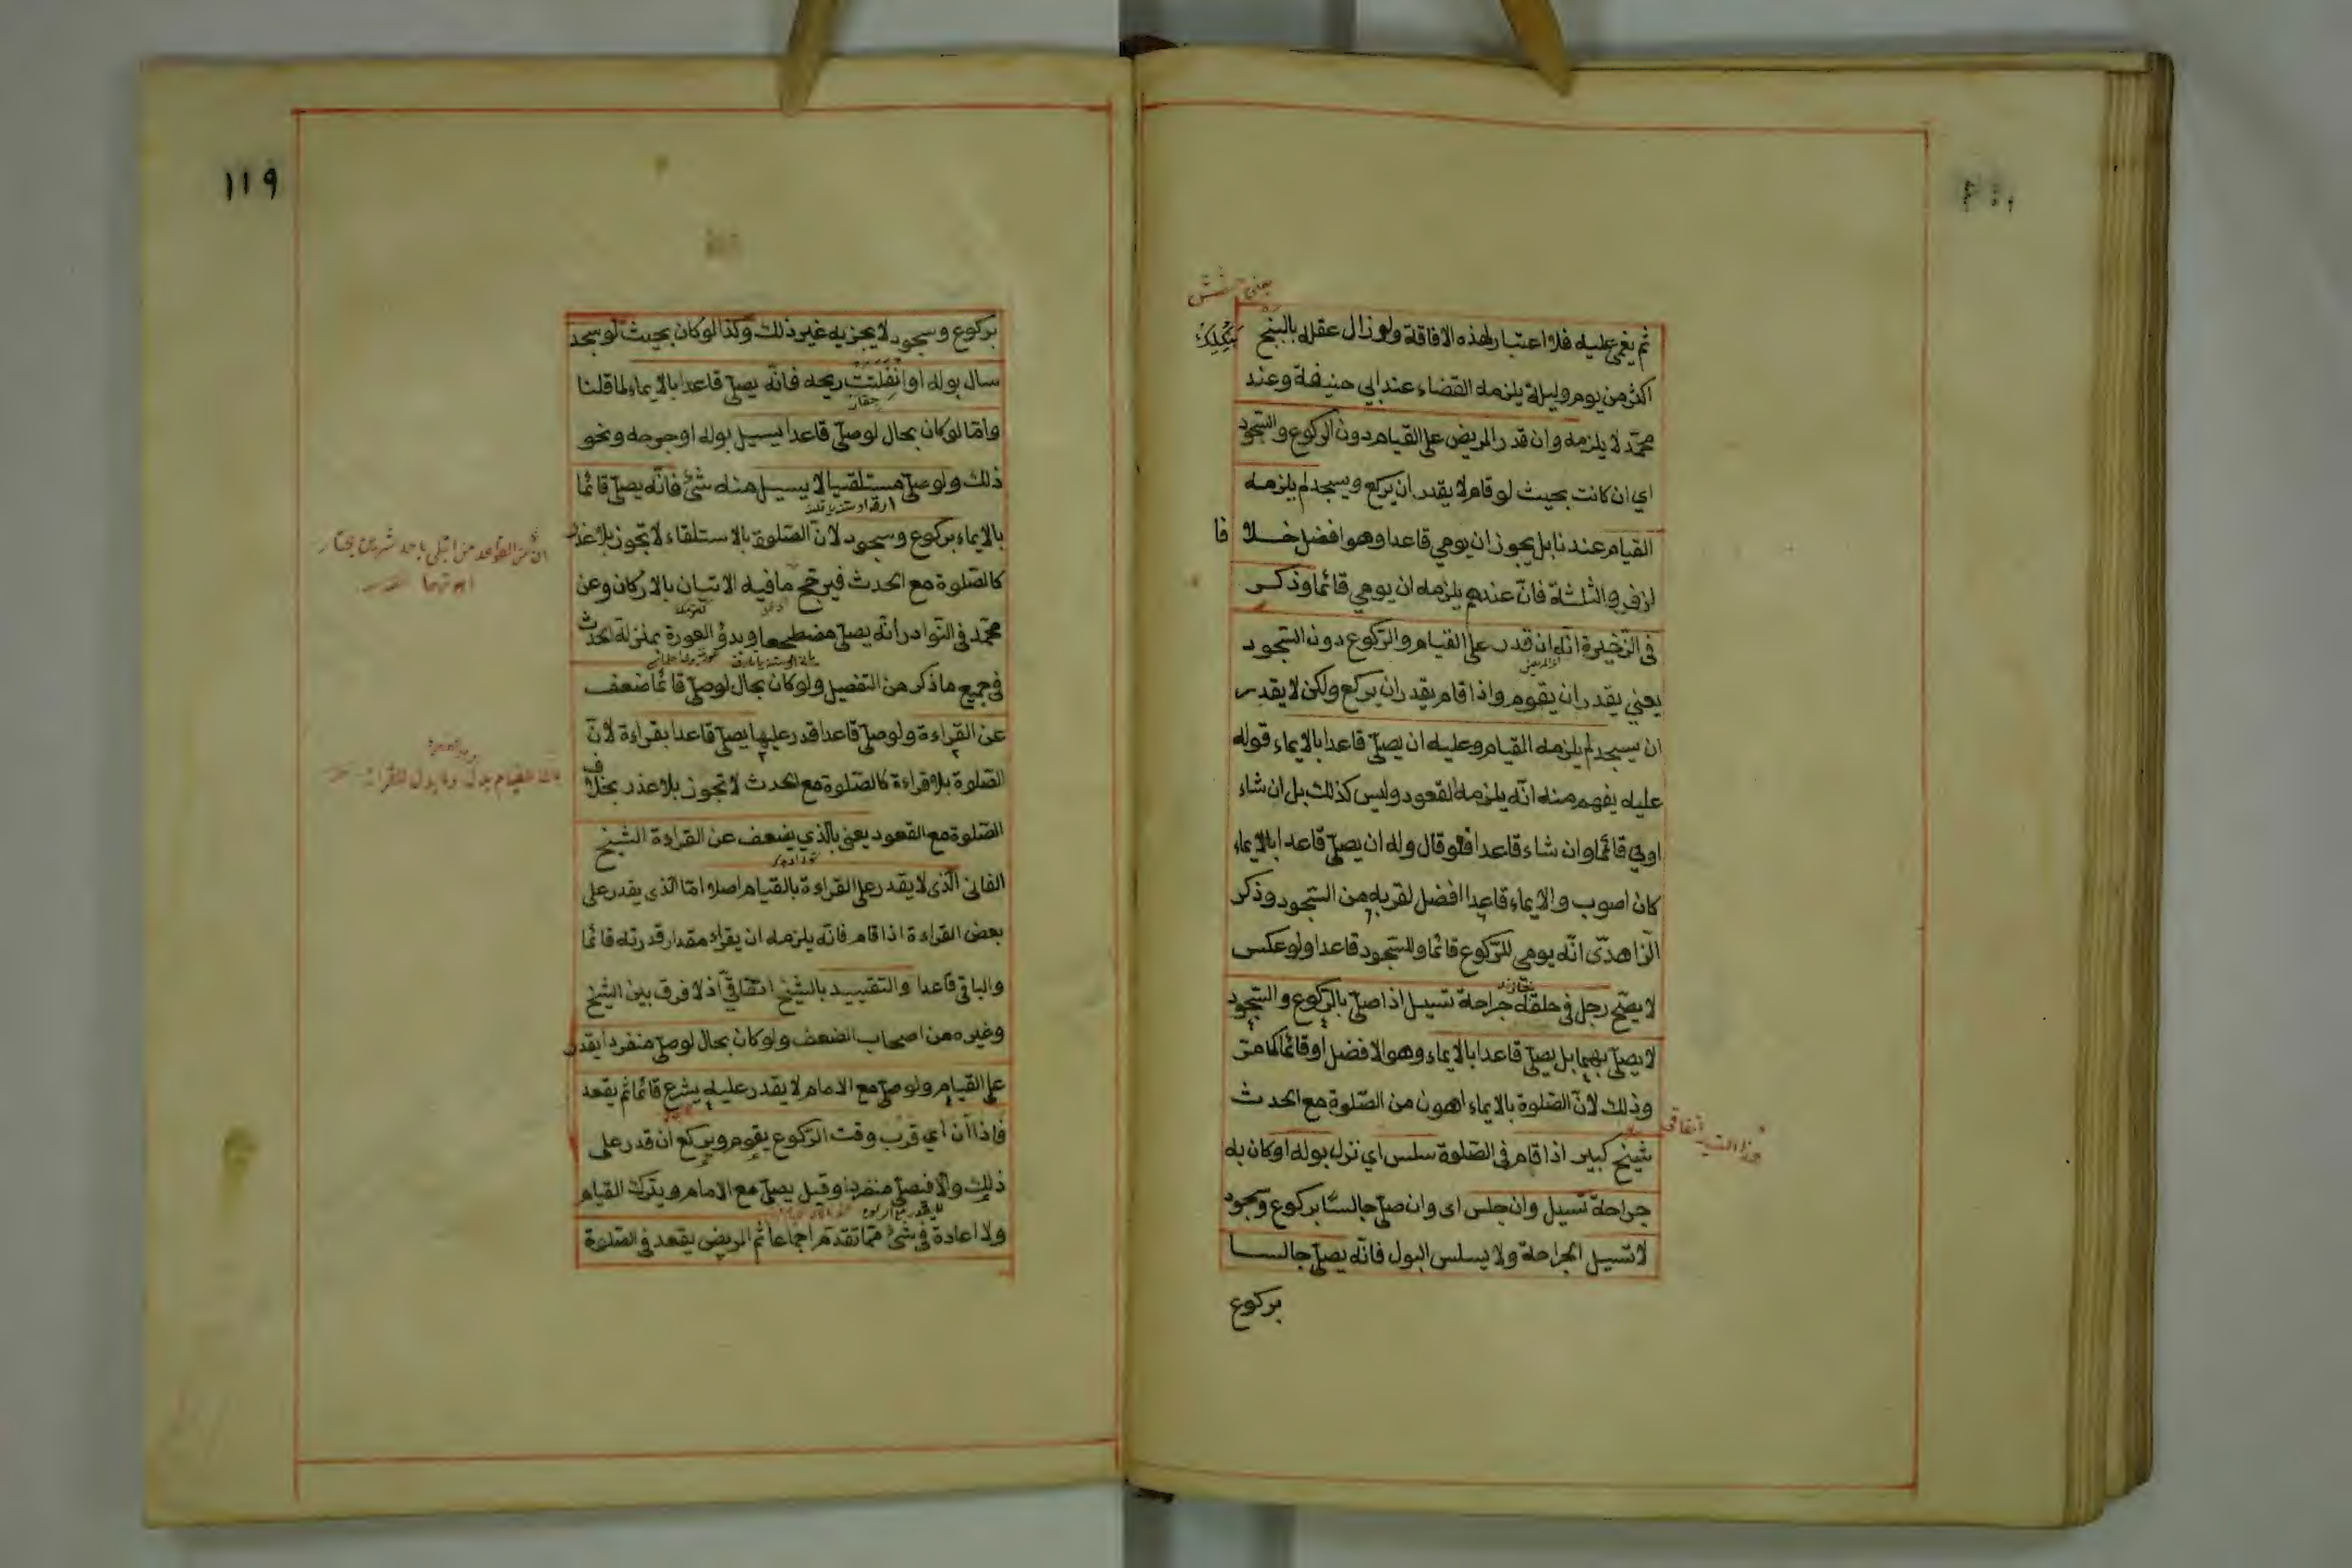 ثم يغمى عليه فلا اعتبار لهذه الافاقة ولو زال عقله بالبنج
اكثر من يوم وليلة يلزمه القضاء عند ابي حنيفة وعند
محمّد لا يلزمه وان قدر المريض على القيام دون الركوع والسّجود
اي ان كانت بحيث لو قام لا يقدر ان يركع ويسجد لم يلزمه
القيام عندنا بل يجوز ان يومي قاعدا وهو افضل خلا فا
لزفر والثلثة فانّ عندهم يلزمه ان يومي قائما وذكر
في الذّخيرة انّه ان قدر على القيام والرّكوع دون السّجود
يعني يقدر ان يقوم واذا قام يقدر ان يركع ولكن لا يقدر
ان يسجد لم يلزمه القيام وعليه ان يصلّي قاعدا بالايماء قوله
عليه يفهم منه انّه يلزمه القعود وليس كذلك بل ان شاء
اومي قائما وان شاء قاعدا فلو قال وله ان يصلّي قاعدا بالايماء
كان اصوب والايماء قاعدا افضل لقربه من السّجود وذكر
الزّاهديّ انّه يومي للرّكوع قائما وللسّجود قاعدا ولو عكس
لا يصحّ رجل في حلقه جراحة تسيل اذا صلّى بالرّكوع والسّجود
لا يصلّي بهما بل يصلّي قاعدا بالايماء وهو الافضل او قائما لما مرّ
وذلك لانّ الصّلوة بالايماء اهون من الصّلوة مع الحدث
شيخ كبير اذا قام في الصّلوة سلس اي نزل بوله او كان به
جراحة تسيل وان جلس اى وان صلّى جالسا بركوع وسجود
لا تسيل الجراحة ولا يسلس البول فانّه يصلّي جالسا
بركوع
١١٩
بركوع وسجود لا يجزيه غير ذلك وكذا لو كان بحيث لو سجد
سال بوله او انفلتت ريحه فانّه يصلّي قاعدا بالايماء لما قلنا
وامّا لو كان بحال لو صلّى قاعدا يسيل بوله او جرحه ونحو
ذلك ولو صلّى مستلقيا لا يسيل منه شئ فانّه يصلّي قائما
بالايماء بركوع وسجود لانّ الصّلوة بالاستلقاء لا تجوز بلا عذر
كالصّلوة مع الحدث فيرجّح ما فيه الاتيان بالاركان وعن
محمّد في النّوادر انّه يصلّي مضطجعا وبدؤ العورة بمنزلة الحدث
في جميع ما ذكر من التفصيل ولو كان بحال لو صلّى قائما ضعف
عن القراءة ولو صلّى قاعدا قدر عليها يصلّي قاعدا بقراءة لانّ
الصّلوة بلا قراءة كالصّلوة مع الحدث لا تجوز بلا عذر بخلاف
الصّلوة مع القعود يعني بالّذي يضعف عن القراءة الشيخ
الفاني الّذي لا يقدر على القراءة بالقيام اصلا امّا الّذى يقدر على
بعض القراءة اذا قام فانّه يلزمه ان يقرأ مقدار قدرته قائما
والباقي قاعدا والتقييد بالشّيخ اتّفاقيّ اذ لا فرق بين الشّيخ
وغيره من اصحاب الضعف ولو كان بحال لو صلّى منفردا يقدر
على القيام ولو صلّى مع الامام لا يقدر عليه يشرع قائما ثم يقعد
فاذا آن اي قرب وقت الرّكوع يقوم ويركع ان قدر على
ذلك والّا فيصلّي منفردا وقيل يصلّي مع الامام ويترك القيام
ولا اعادة في شئ ممّا تقدّم اجماعا ثم المريض يقعد في الصّلوة